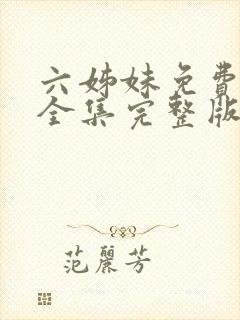 六姊妹免費
全集完整版
范麗芳